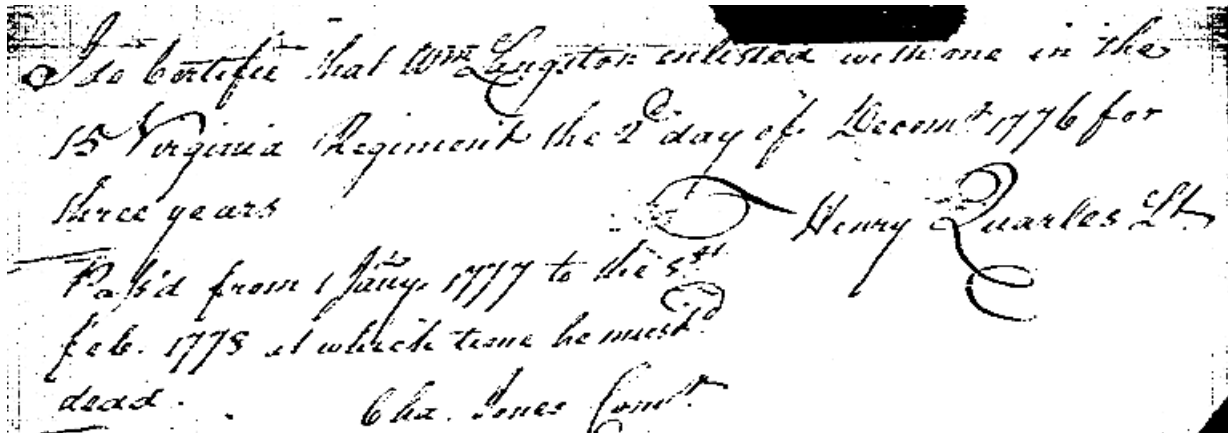 I do Certifie that Wm Langston enlisted with me in the
15 Virginia Regiment the 2d day of Decemr 1776 for
three years Henry Quarles Lt.
Pass'd from 1 Jany. 1777 to the
Feb. 1778 at which time he must'd
dead. Cha. Jones Comr.